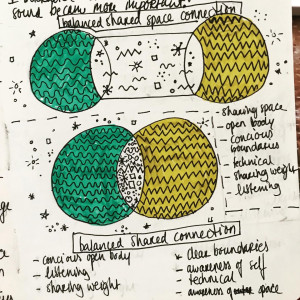 sound became more important.
balanced shared space connection
- sharing space
- open body
- concious
boundaries
- technical
- sharing weight
- listening
balanced shared connection
- concious open body
- listening
- sharing weight
* clear boundaries
- awareness of self
- technical
- awareness of space